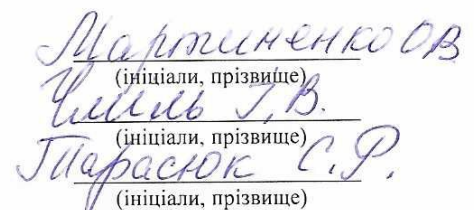 Мартиненко О В
(ініціали, прізвище)
Чміль І, В.
(ініціали, прізвище)
Тарасюк С. Р.
(ініціали, прізвище)